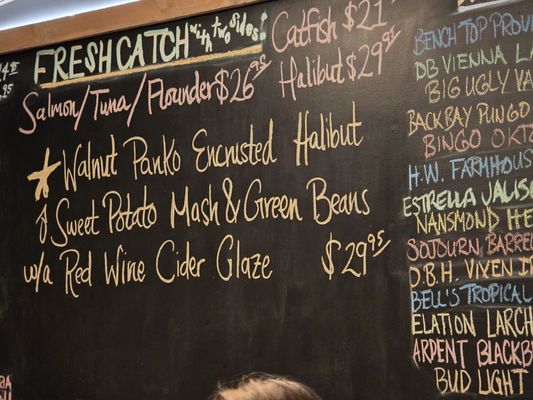 FRESH CATCH with two sides
Catfish $21
Salmon/Tuna/Flounder $26.95
Halibut $29
Walnut Panko Encrusted Halibut
Sweet Potato Mash & Green Beans
w/a Red Wine Cider Glaze $29.95
BENCH TOP PROVI
DB VIENNA LA
BIG UGLY VA
BACKBAY PUNGO
BINGO OKTO
H.W. FARMHOUS
ESTRELLA JALISC
NANSMOND HE
SOJOURN BARREL
D.B.H. VIXEN
BELL'S TROPICAL
ELATION LARCH
ARDENT BLACKB
BUD LIGHT